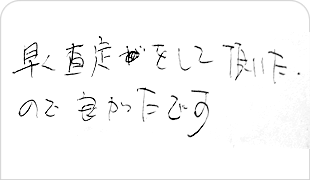 早く査定をして頂いた.
ので良かったです